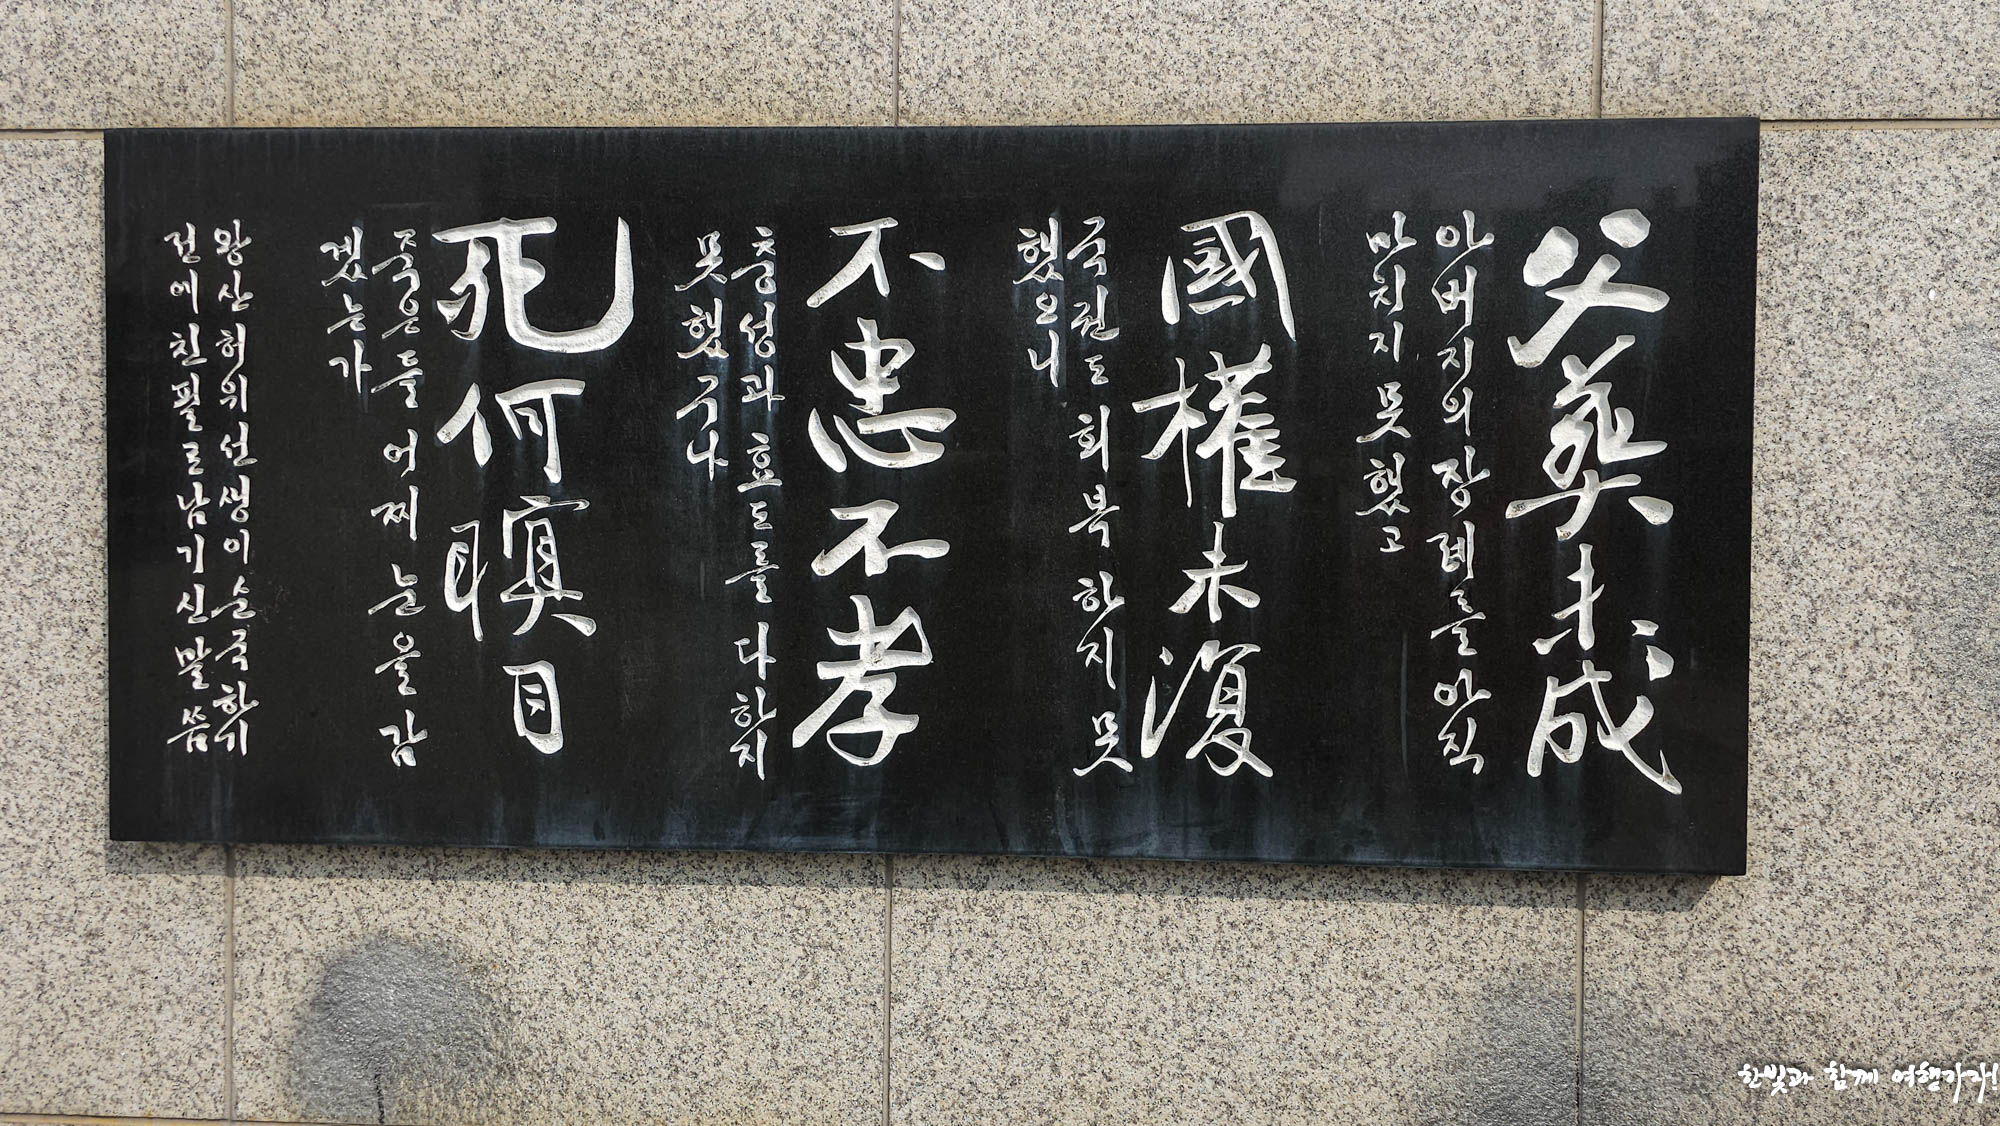 父葬未成
아버지의 장례를 아직
마치지 못했고
國權未復
국권도 회복하지 못
했으니
不忠不孝
충성과 효도를 다하지
못했구나
死何瞑目
죽은들 어찌 눈을 감
겠는가
왕산 허위 선생이 순국하기
전에 친필로 남기신 말씀
한빛과 함께 여행가자!